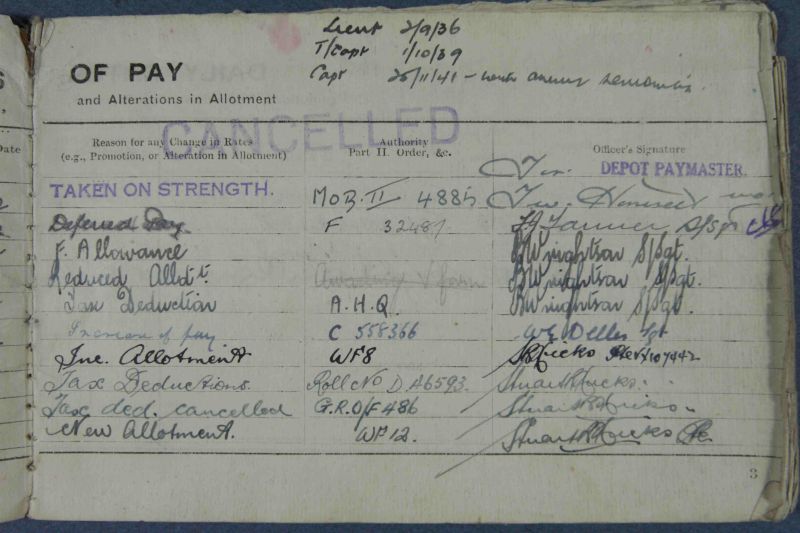 Lieut 2/9/36
T/Capt 1/10/39
OF PAY
Capt 25/11/41 -
and Alterations in Allotment
CANCELLED
Reason for any Change in Rates
(e.g., Promotion, or Alteration in Allotment)
Authority
Part II. Order, &c.
Officer's Signature
For DEPOT PAYMASTER.
Date
TAKEN ON STRENGTH. MOB. II 4885
Deferred Pay F 32481 Farmer S/Sgt
F. Allowance BWrightson S/Sgt.
Reduced Allot. BWrightson S/Sgt.
Tax Deduction A.H.Q. BWrightson S/Sgt.
Increase of pay C 558366 Sgt
Inc. Allotment WF8 Hicks
Tax Deductions. Roll No D.A6593. Stuart R Hicks.
Tax ded. cancelled G.R.O/F486 Stuart R Hicks.
New Allotment. WF12. Stuart R Hicks
3